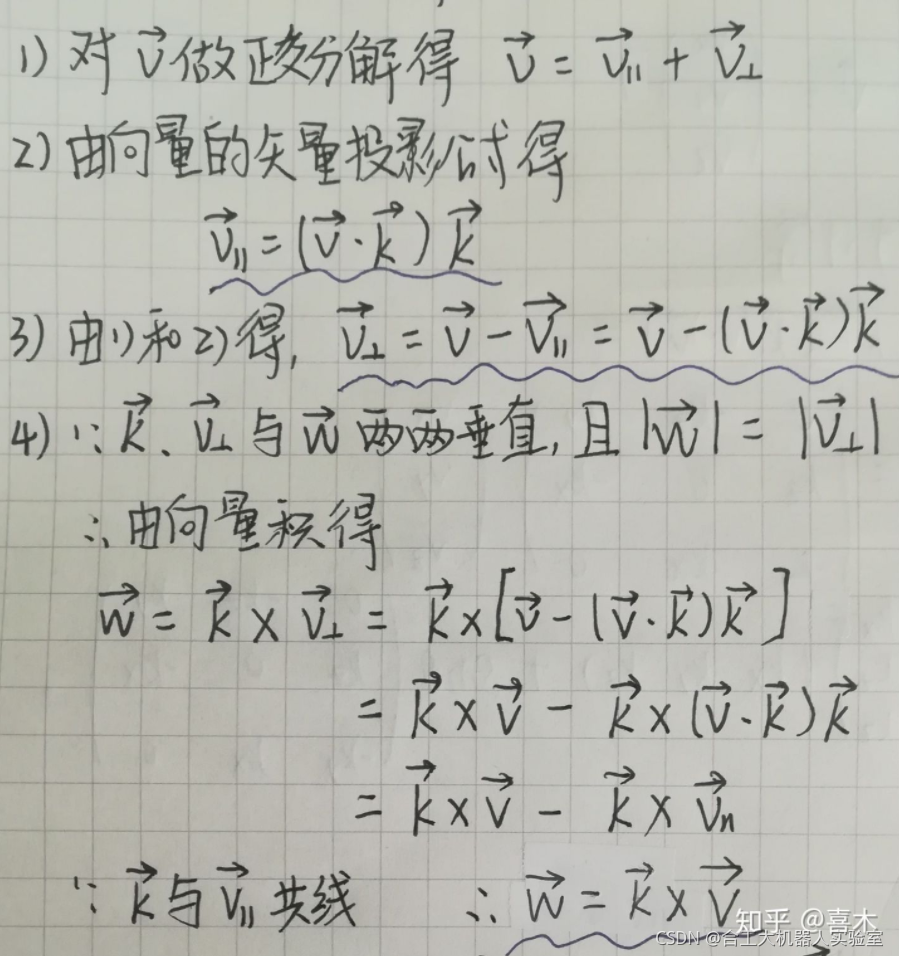 1) 对 v⃗ 做正交分解得 v⃗ = v⃗∥ + v⃗⊥
2) 由向量的矢量投影公式得
v⃗∥ = (v⃗·k⃗) k⃗
3) 由1)和2)得, v⃗⊥ = v⃗ - v⃗∥ = v⃗ - (v⃗·k⃗)k⃗
4) ∵ k⃗、v⃗⊥ 与 w⃗ 两两垂直, 且 |w⃗| = |v⃗⊥|
∴ 由向量积得
w⃗ = k⃗ × v⃗⊥ = k⃗ × [v⃗ - (v⃗·k⃗)k⃗]
= k⃗ × v⃗ - k⃗ × (v⃗·k⃗)k⃗
= k⃗ × v⃗ - k⃗ × v⃗∥
∵ k⃗ 与 v⃗∥ 共线 ∴ w⃗ = k⃗ × v⃗
知乎 @喜木
CSDN @合工大机器人实验室